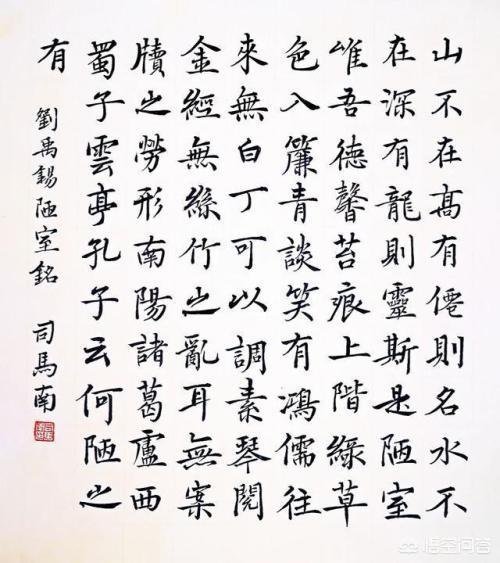 山不在高有僊則名水不
在深有龍則靈斯是陋室
唯吾德馨苔痕上階綠草
色入簾青談笑有鴻儒往
來無白丁可以調素琴閱
金經無絲竹之亂耳無案
牘之勞形南陽諸葛廬西
蜀子雲亭孔子云何陋之
有
劉禹錫陋室銘 司馬南
悟空问答